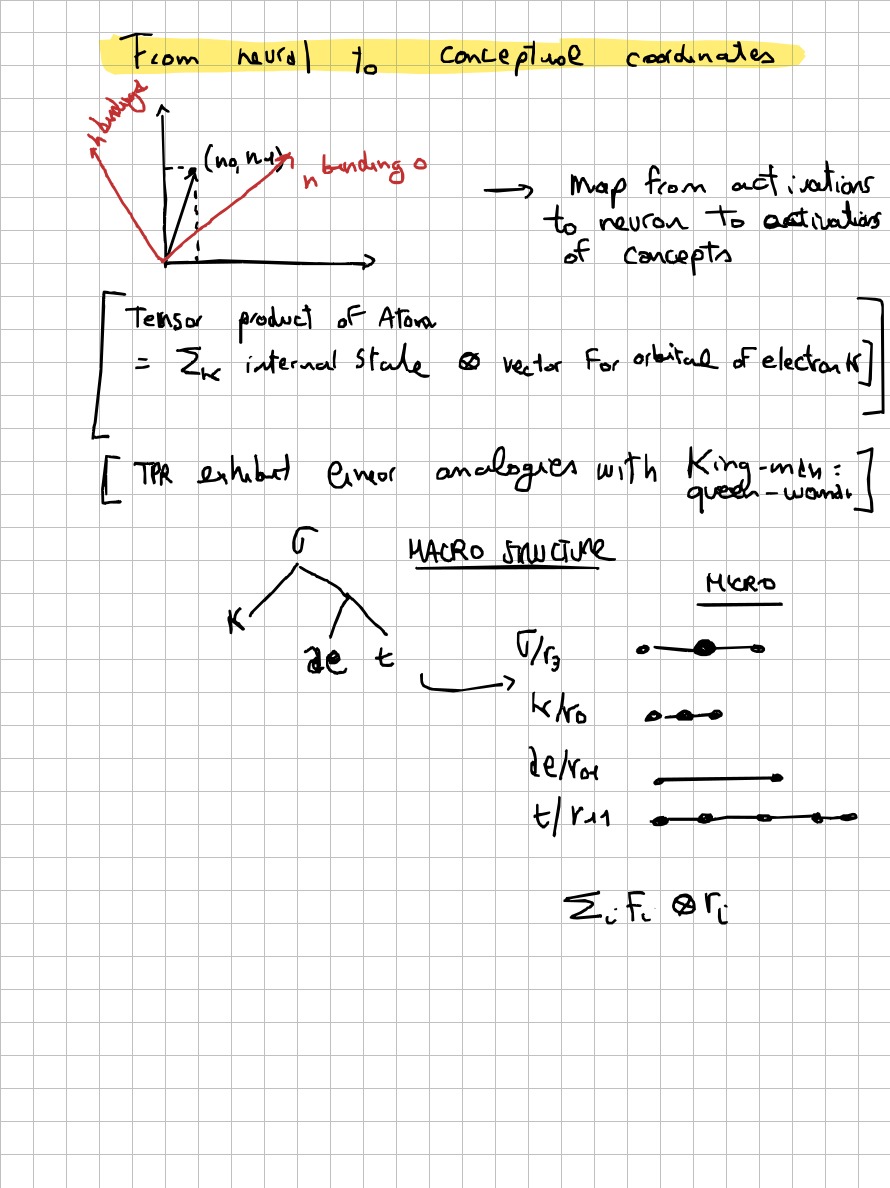 From neural to conceptual coordinates
n binding 1
(n0, n1)
n binding 0
→ map from activations
to neuron to activations
of concepts
[ Tensor product of Atom
= Σk internal state ⊗ vector for orbital of electron k ]
[ TPR exhibit linear analogies with King-man =
queen-woman ]
σ
MACRO STRUCTURE
MICRO
k
æ t
σ/r3
k/r0
æ/r01
t/r11
Σi Fi ⊗ ri